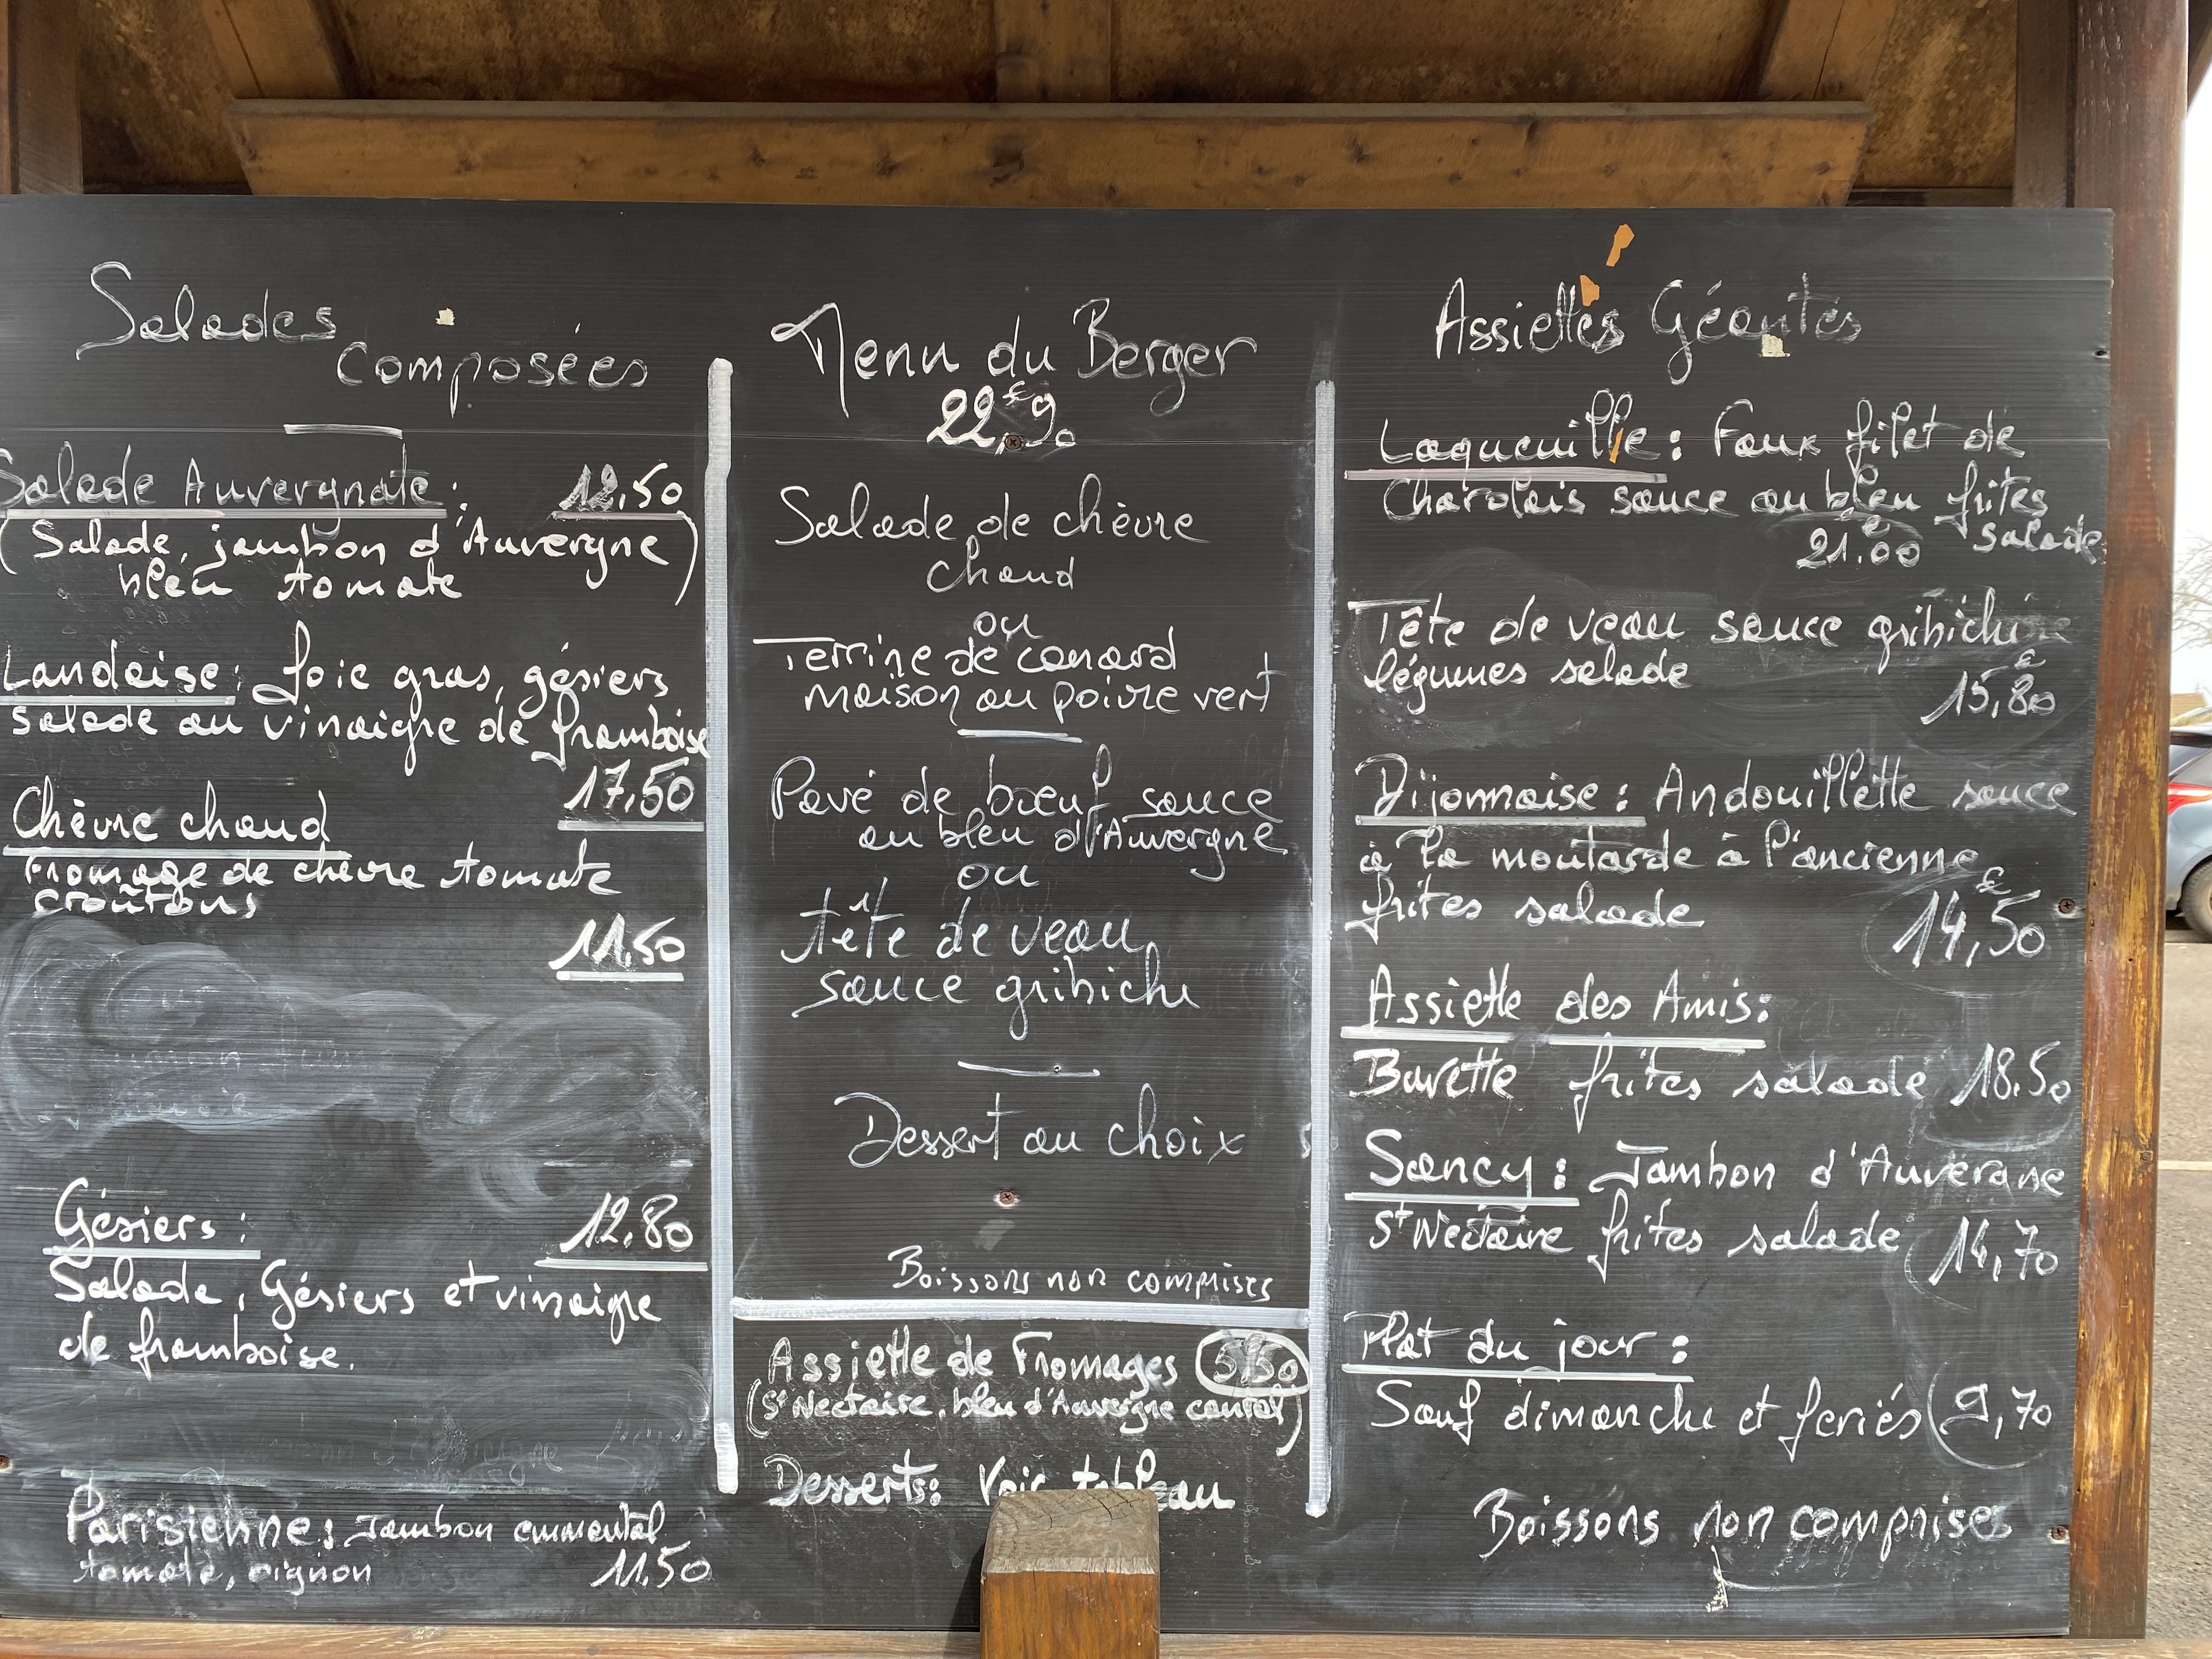 Salades
composées
Salade Auvergnate : 12,50
(Salade, jambon d'Auvergne)
bleu tomate
Landaise : foie gras, gésiers
salade au vinaigre de framboise
17,50
Chèvre chaud
Fromage de chèvre tomate
croûtons
11,50
Gésiers : 12,80
Salade, Gésiers et vinaigre
de framboise.
Parisienne : Jambon emmental
tomate, oignon 11,50
Menu du Berger
22,€90
Salade de chèvre
chaud
ou
Terrine de canard
maison au poivre vert
Pavé de bœuf sauce
au bleu d'Auvergne
ou
tête de veau
sauce gribiche
Dessert au choix
Boissons non comprises
Assiette de Fromages 5,50
(St Nectaire, bleu d'Auvergne cantal)
Desserts : Voir tableau
Assiettes Géantes
Laqueuille : Faux filet de
Charolais sauce au bleu frites
21.€00 salade
Tête de veau sauce gribiche
légumes salade
15,€80
Dijonnaise : Andouillette sauce
à la moutarde à l'ancienne
frites salade 14,€50
Assiette des Amis :
Bavette frites salade 18,50
Sancy : Jambon d'Auvergne
St Nectaire frites salade 14,70
Plat du jour :
Sauf dimanche et feriés 9,70
Boissons non comprises